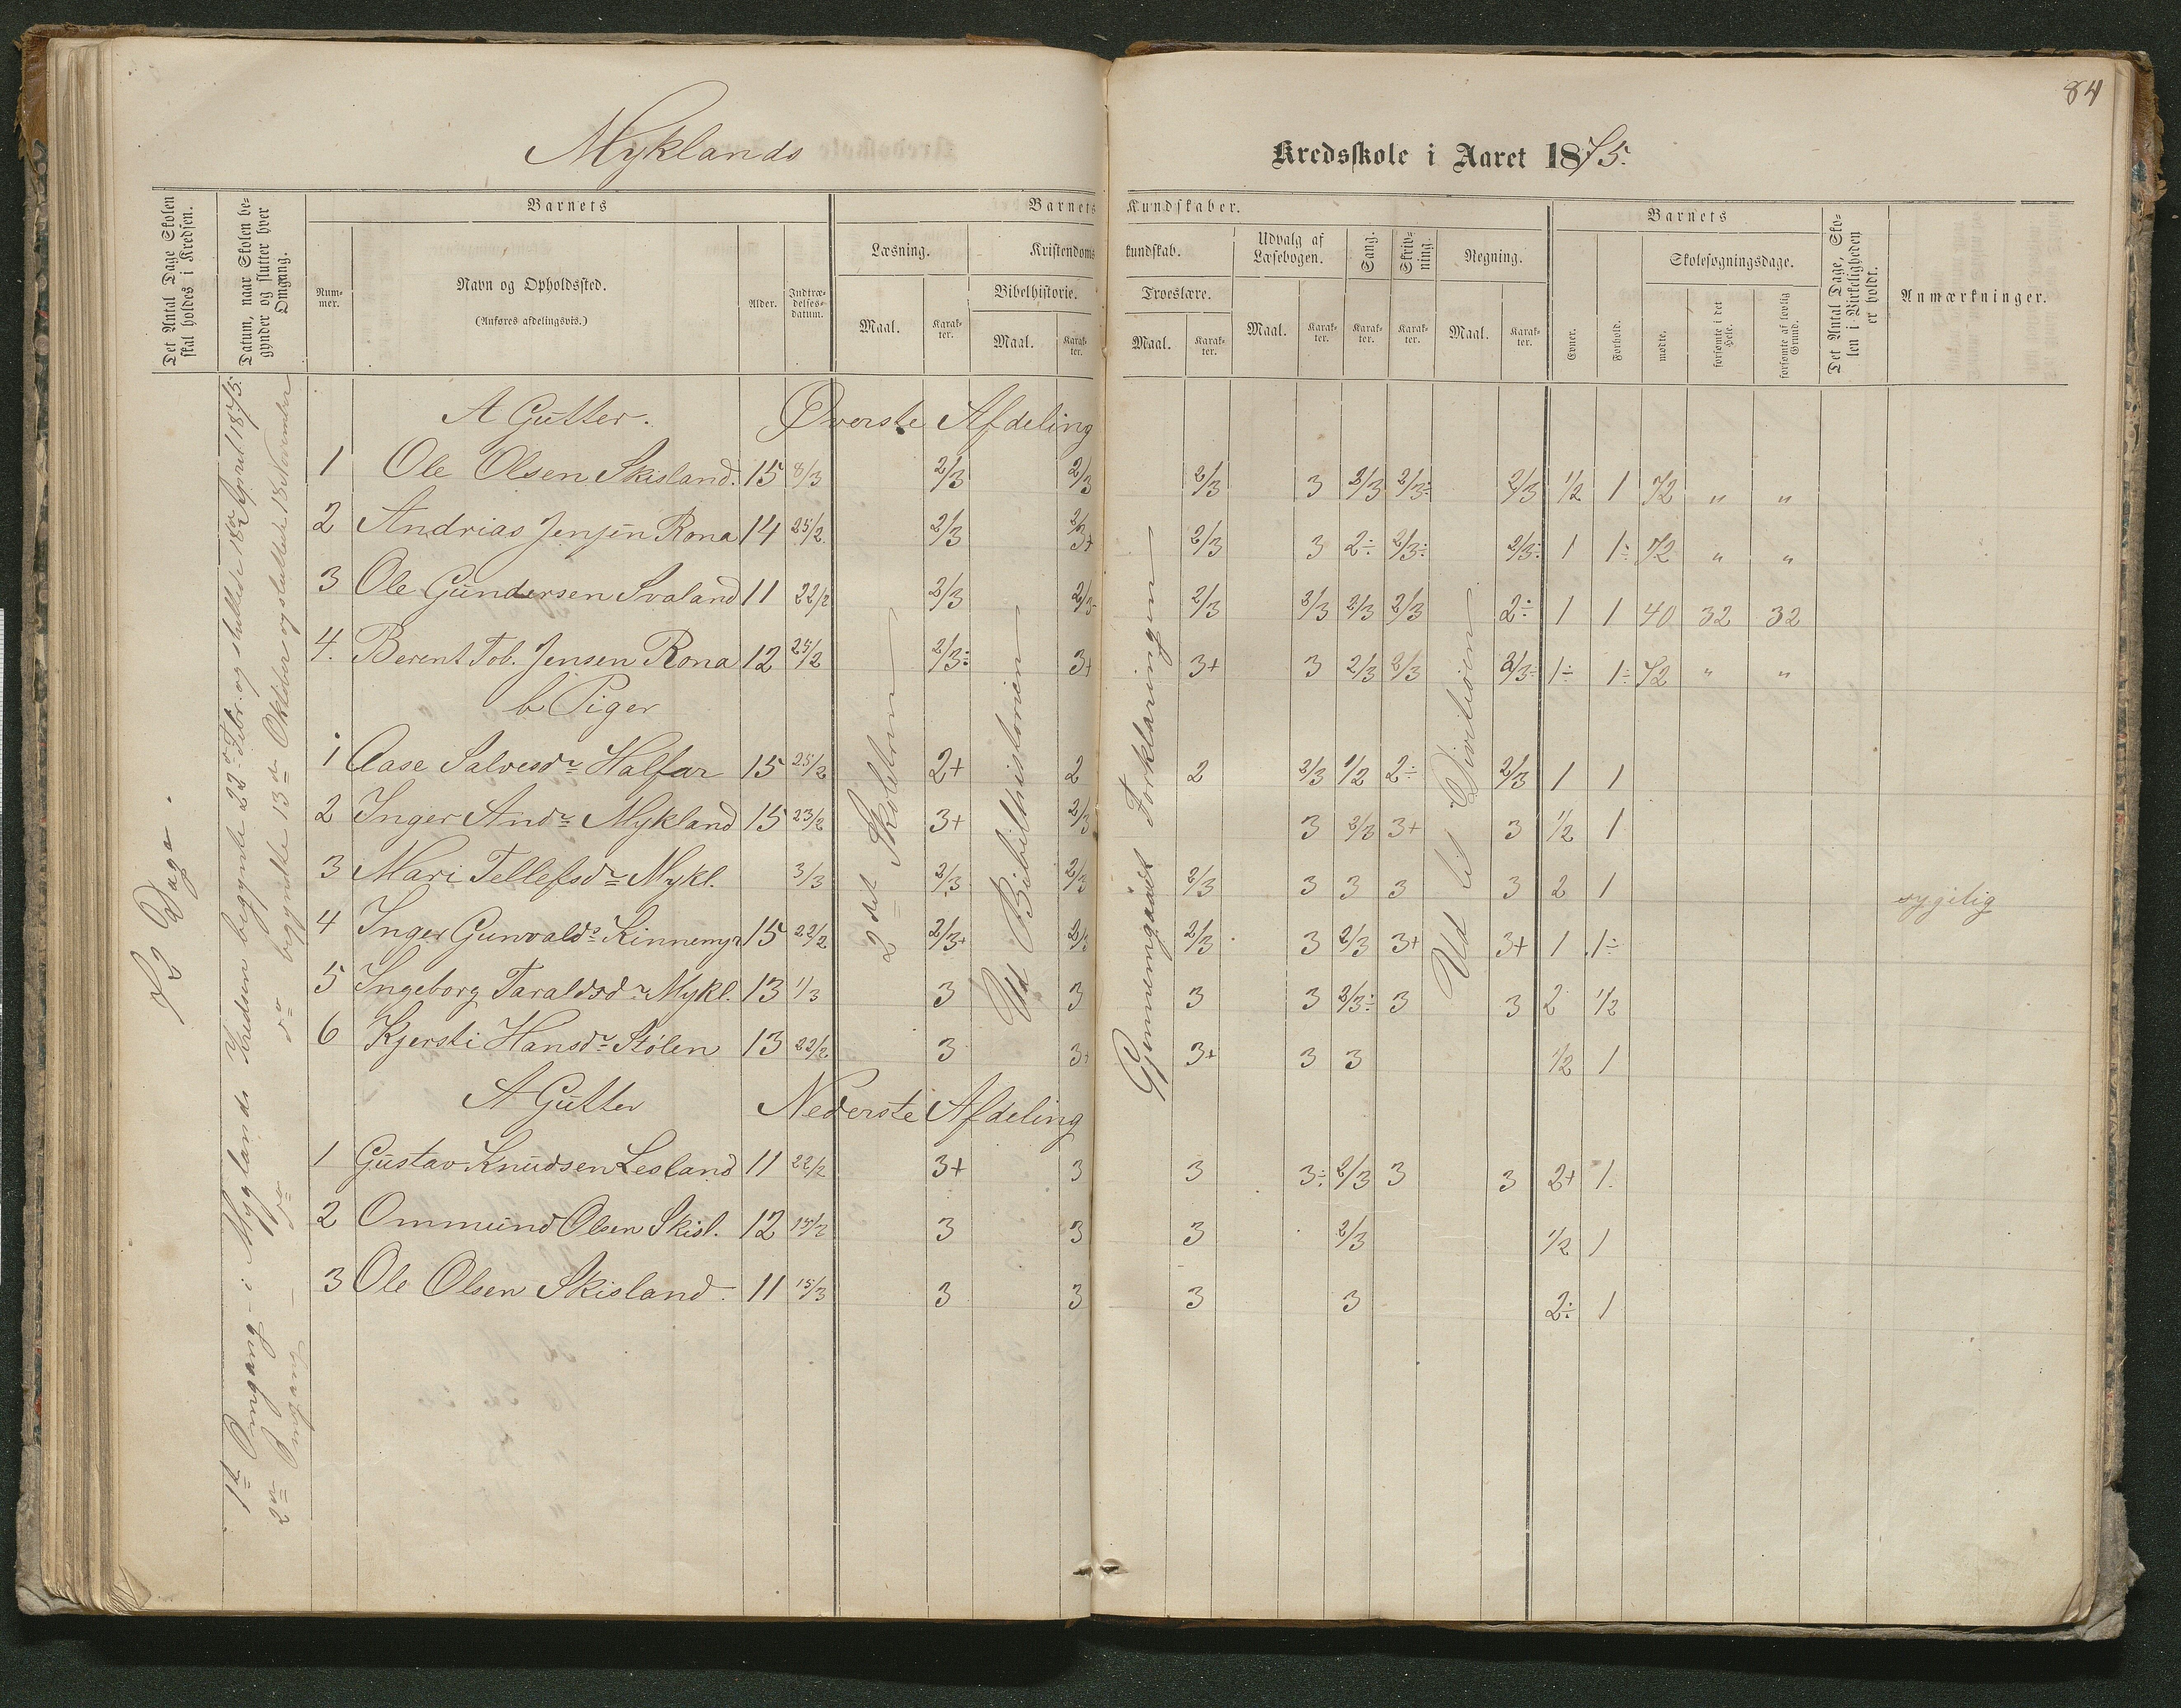 84
Myklands Kredsskole i Aaret 1875.
Det Antal Dage Skolen skal holdes i Kredsen.
Datum, naar Skolen begynder og slutter hver Omgang.
Barnets
Nummer.
Navn og Opholdssted.
(Anføres afdelingsvis.)
Alder.
Indtrædelsesdatum.
Barnets Kundskaber.
Læsning.
Maal.
Karakter.
Kristendomskundskab.
Bibelhistorie.
Maal.
Karakter.
Troeslære.
Maal.
Karakter.
Udvalg af Læsebogen.
Maal.
Karakter.
Sang.
Karakter.
Skrivning.
Karakter.
Regning.
Maal.
Karakter.
Barnets
Evner.
Forhold.
Skolesøgningsdage.
mødte.
forsømte i det Hele.
forsømte af lovlig Grund.
Det Antal Dage, Skolen i Virkeligheden er holdt.
Anmærkninger.
72 Dage.
1ste Omgang i Myglands Kredsen begynte 22de Febr. og sluttede 18de April 1875.
2den Omgang do do begyndte 13de Oktober og sluttede 18 November
2det Skoletrin
Ud Bibelhistorien
Gjennemgaaet Forklaringen
Ud til Divitisien
A Gutter. Øverste Afdeling
1 Ole Olsen Skisland. 15 8/3 2/3 2/3 2/3 3 2/3 2/3÷ 2/3 1/2 1 72 " "
2 Andrias Jensen Rona 14 25/2 2/3 2/3+ 2/3 3 2÷ 2/3÷ 2/3÷ 1 1÷ 72 " "
3 Ole Gundersen Svaland 11 22/2 2/3 2/3 2/3 2/3 2/3 2/3 2÷ 1 1 40 32 32
4. Berent Tob. Jensen Rona 12 25/2 2/3÷ 3+ 3+ 3 2/3 2/3 2/3÷ 1÷ 1÷ 72 " "
b Piger
1 Aase Salvesdr Halfar 15 25/2 2+ 2 2 2/3 1/2 2÷ 2/3 1 1
2 Inger Andr Mykland 15 23/2 3+ 2/3 3 2/3 3+ 3 1/2 1
3 Mari Tellefsdr Mykl. 3/3 2/3 2/3 2/3 3 3 3 3 2 1 sygelig
4 Inger Gunvalds Kinnemyr 15 22/2 2/3+ 2/3 2/3 3 2/3 3+ 3+ 1 1÷
5 Ingeborg Taraldsdr Mykl. 13 1/3 3 3 3 3 2/3÷ 3 3 2 1/2
6 Kjersti Hansdr Stølen 13 22/2 3 3+ 3+ 3 3 1/2 1
A Gutter Nederste Afdeling
1 Gustav Knudsen Lesland 11 22/2 3+ 3 3 3÷ 2/3 3 3 2+ 1
2 Ommund Olsen Skisl. 12 15/2 3 3 3 2/3 1/2 1
3 Ole Olsen Skisland 11 15/3 3 3 3 3 2÷ 1